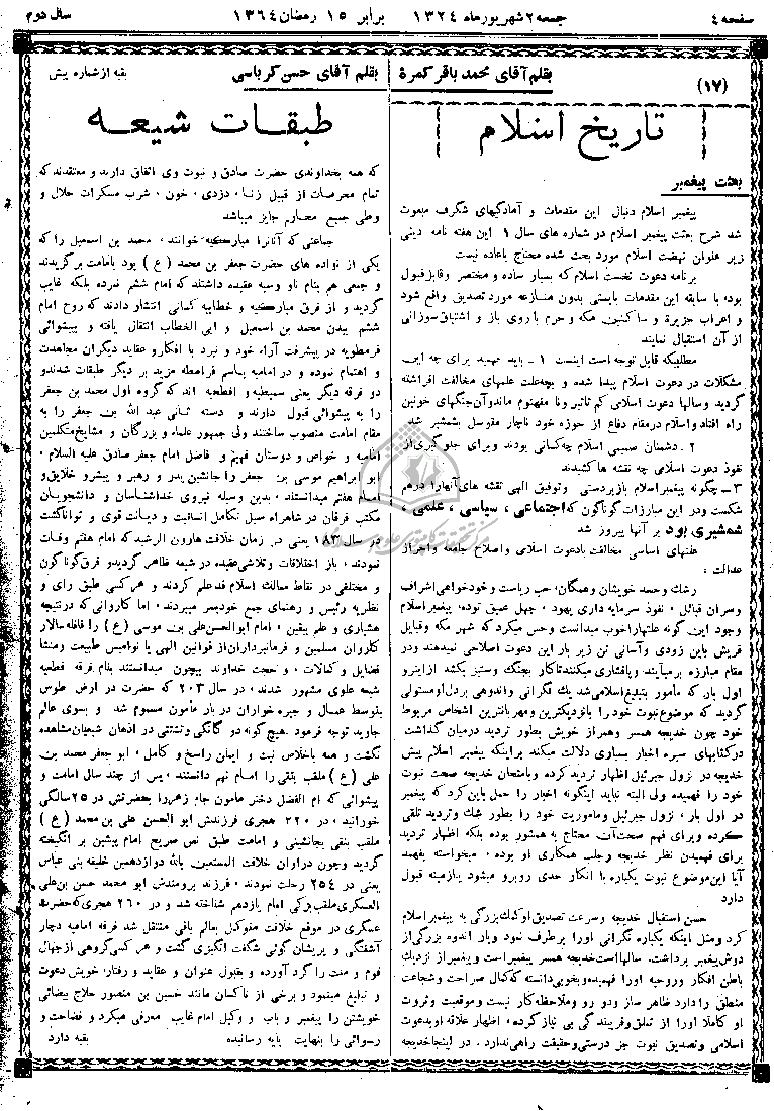 صفحه ۴
جمعه ۲ شهریور ماه ۱۳۲۴ برابر ۱۵ رمضان ۱۳۶۴
سال دوم
(۱۷)
بقلم آقای محمد باقر کمرهٔ
تاریخ اسلام
بعثت پیغمبر
پیغمبر اسلام دنبال این مقدمات و آمادگیهای شگرف مبعوث
شد شرح بعثت پیغمبر اسلام در شماره های سال ۱ این هفته نامه دینی
زیر عنوان نهضت اسلام مورد بحث شده محتاج باعاده نیست
برنامه دعوت نخست اسلام که بسیار ساده و مختصر وقابل قبول
بوده با سابقه این مقدمات بایستی بدون منازعه مورد تصدیق واقع شود
و اعراب جزیرة و ساکنین مکه و حرم با روی باز و اشتیاق سوزانی
از آن استقبال نمایند
مطلبیکه قابل توجه است اینست ۱ـ باید فهمید برای چه این
مشکلات در دعوت اسلام پیدا شده و بچه علت علمهای مخالفت افراشته
گردید و سالها دعوت اسلامی کم تاثیر ونا مفهوم ماند و آن جنگهای خونین
راه افتاد و اسلام در مقام دفاع از حوزه خود ناچار متوسل بشمشیر شد
۲ـ دشمنان صمیمی اسلام چه کسانی بودند و برای جلوگیری از
نفوذ دعوت اسلامی چه نقشه ها کشیدند
۳ـ چگونه پیغمبر اسلام با زبردستی وتوفیق الهی نقشه های آنها را درهم
شکست ودر این مبارزات گوناگون که اجتماعی ، سیاسی ، علمی ،
شمشیری بود بر آنها پیروز شد
علتهای اساسی مخالفت با دعوت اسلامی واصلاح جامعه واحراز
عدالت :
رشك وحسد خویشان و همگان، حب ریاست و خودخواهی اشراف
وسران قبائل ، نفوذ سرمایه داری یهود ، جهل عمیق توده، پیغمبر اسلام
وجود این گونه علتها را خوب میدانست وحس میکرد که شهر مکه وقبایل
قریش باین زودی وآسانی تن زیر بار این دعوت اصلاحی نمیدهند ودر
مقام مبارزه برمیآیند و پافشاری میکنند تا کار بجنگ وستیز بکشد از اینرو
اول بار که مأمور بتبلیغ اسلامی شد یك نگرانی واندوهی بر دل او مستولی
گردید که موضوع نبوت خود را با نزدیکترین ومهربانترین اشخاص مربوط
خود چون خدیجه همسر وهمراز خویش بطور تردید درمیان گذاشت
در کتابهای سیره اخبار بسیاری دلالت میکند براینکه پیغمبر اسلام پیش
خدیجه در نزول جبرئیل اظهار تردید کرده و بامتحان خدیجه صحت نبوت
خود را فهمیده ولی البته نباید اینگونه اخبار را حمل باین کرد که پیغمبر
در اول بار ، نزول جبرئیل وماموریت خود را بطور شك وتردید تلقی
کرده وبرای فهم صحت آن محتاج به همسر بوده بلکه اظهار تردید
برای فهمیدن نظر خدیجه وجلب همکاری او بوده ، میخواسته بفهمد
آیا این موضوع نبوت یکباره با انکار جدی روبرو میشود یا زمینه قبول
دارد
حسن استقبال خدیجه وسرعت تصدیق او کمك بزرگی به پیغمبر اسلام
کرد ومثل اینکه یکباره نگرانی اورا برطرف نمود وبار اندوه بزرگی از
دوش پیغمبر برداشت، سالها است خدیجه همسر پیغمبر است و پیغمبر از نزدیك
باطن افکار وروحیه اورا فهمیده و بخوبی دانسته که کمال صراحت و شجاعت
منطق را دارد ظاهر ساز ودو رو وملاحظه کار نیست وموقعیت وثروت
او کاملا اورا از تملق وفریبندگی بی نیاز کرده ، اظهار علاقه او بدعوت
اسلامی وتصدیق نبوت جز درستی و حقیقت راهی ندارد . در اینجا خدیجه
بقلم آقای حسن کرباسی
بقیه از شماره پیش
طبقات شیعه
که همه بخداوندی حضرت صادق و نبوت وی اتفاق دارند و معتقدند که
تمام محرمات از قبیل زنا ، دزدی ، خون ، شرب مسکرات حلال و
وطی جمیع محارم جایز میباشد
جماعتی که آنانرا مبارکیه خوانند ، محمد بن اسمعیل را که
یکی از نواده های حضرت جعفر بن محمد (ع) بود بامامت برگزیدند
و جمعی هم بنام ناو وسیه عقیده داشتند که امام ششم نمرده بلکه غایب
گردید و از فرق مبارکیه و خطابیه کسانی انتشار دادند که روح امام
ششم ببدن محمد بن اسمعیل و ابی الخطاب انتقال یافته و بیشوائی
قرمطویه در پیشرفت آراء خود و نبرد با افکار و عقاید دیگران مجاهدت
و اهتمام نموده و در امامیه باسم قرامطه مزید بر دیگر طبقات شدند و
دو فرقه دیگر یعنی سمیطیه و افطحیه اند که گروه اول محمد بن جعفر
را به پیشوائی قبول دارند و دسته ثانی عبد الله بن جعفر را به
مقام امامت منصوب ساختند ولی جمهور علماء و بزرگان و مشایخ متکلمین
امامیه و خواص و دوستان فهیم و فاضل امام جعفر صادق علیه السلام ،
ابو ابراهیم موسی بن جعفر را جانشین پدر و رهبر و پیشرو خلایق و
امام هفتم میدانستند ، بدین وسیله نیروی خداشناسان و دانشجویان
مکتب فرقان در شاهراه سیل تکامل انسانیت و دیانت قوی و توانا گشت
در سال ۱۸۳ یعنی در زمان خلافت هارون الرشید که امام هفتم وفات
نمودند ، باز اختلافات و تلاشی عقیده در شیعه ظاهر گردید و فرق گوناگون
و مختلفی در نقاط ممالك اسلام قد علم کردند و هر کسی طبق رای و
نظریه رئیس و رهنمای جمع خود بسر میبردند ، اما کاروانی که در نتیجه
هشیاری و علم یقین ، امام ابوالحسن علی بن موسی (ع) را قافله سالار
کاروان مسلمین و فرمانبرداران از قوانین الهی یا نوامیس طبیعت ومنشا
فضایل و کمالات ، و حجت خداوند بیچون میدانستند بنام فرقه قطعیه
شیعه علوی مشهور شدند ، در سال ۲۰۳ که حضرت در ارض طوس
بتوسط عمال و جیره خواران در بار مأمون مسموم شد و بسوی عالم
جاوید توجه فرمود هیچ گونه دو گانگی و تشتتی در اذهان شیعیان مشاهده
نگشت و همه با خلاص نیت و ایمان راسخ و کامل ، ابو جعفر محمد بن
علی (ع) ملقب بتقی را امام نهم دانستند ، پس از چند سال امامت و
پیشوائی که ام الفضل دختر مامون جام زهر را بحضرتش در ۲۵ سالگی
خورانید ، در ۲۲۰ هجری فرزندش ابو الحسن علی بن محمد (ع)
ملقب بنقی بجانشینی و امامت طبق نص صریح امام پیشین بر انگیخته
گردید وچون دراوان خلافت المستعین بالله دوازدهمین خلیفه بنی عباس
یعنی در ۲۵۴ رحلت نمودند ، فرزند برومندش ابو محمد حسن بن علی
العسکری ملقب بزکی امام یازدهم شناخته شد و در ۲۶۰ هجری که حضرت
عسکری در موقع خلافت متوکل بعالم باقی منتقل شد فرقه امامیه دچار
آشفتگی و پریشان گوئی شگفت انگیزی گشت و هر کسی گروهی از جهال
قوم و ملت را گرد آورده و بقبول عنوان و عقاید و رفتار خویش دعوت
و تبلیغ مینمود و برخی از ناکسان مانند حسین بن منصور حلاج بیضائی
خویشتن را پیغمبر و باب و وکیل امام غایب معرفی میکرد و فضاحت و
رسوائی را بنهایت پایه رسانیده
بقیه دارد